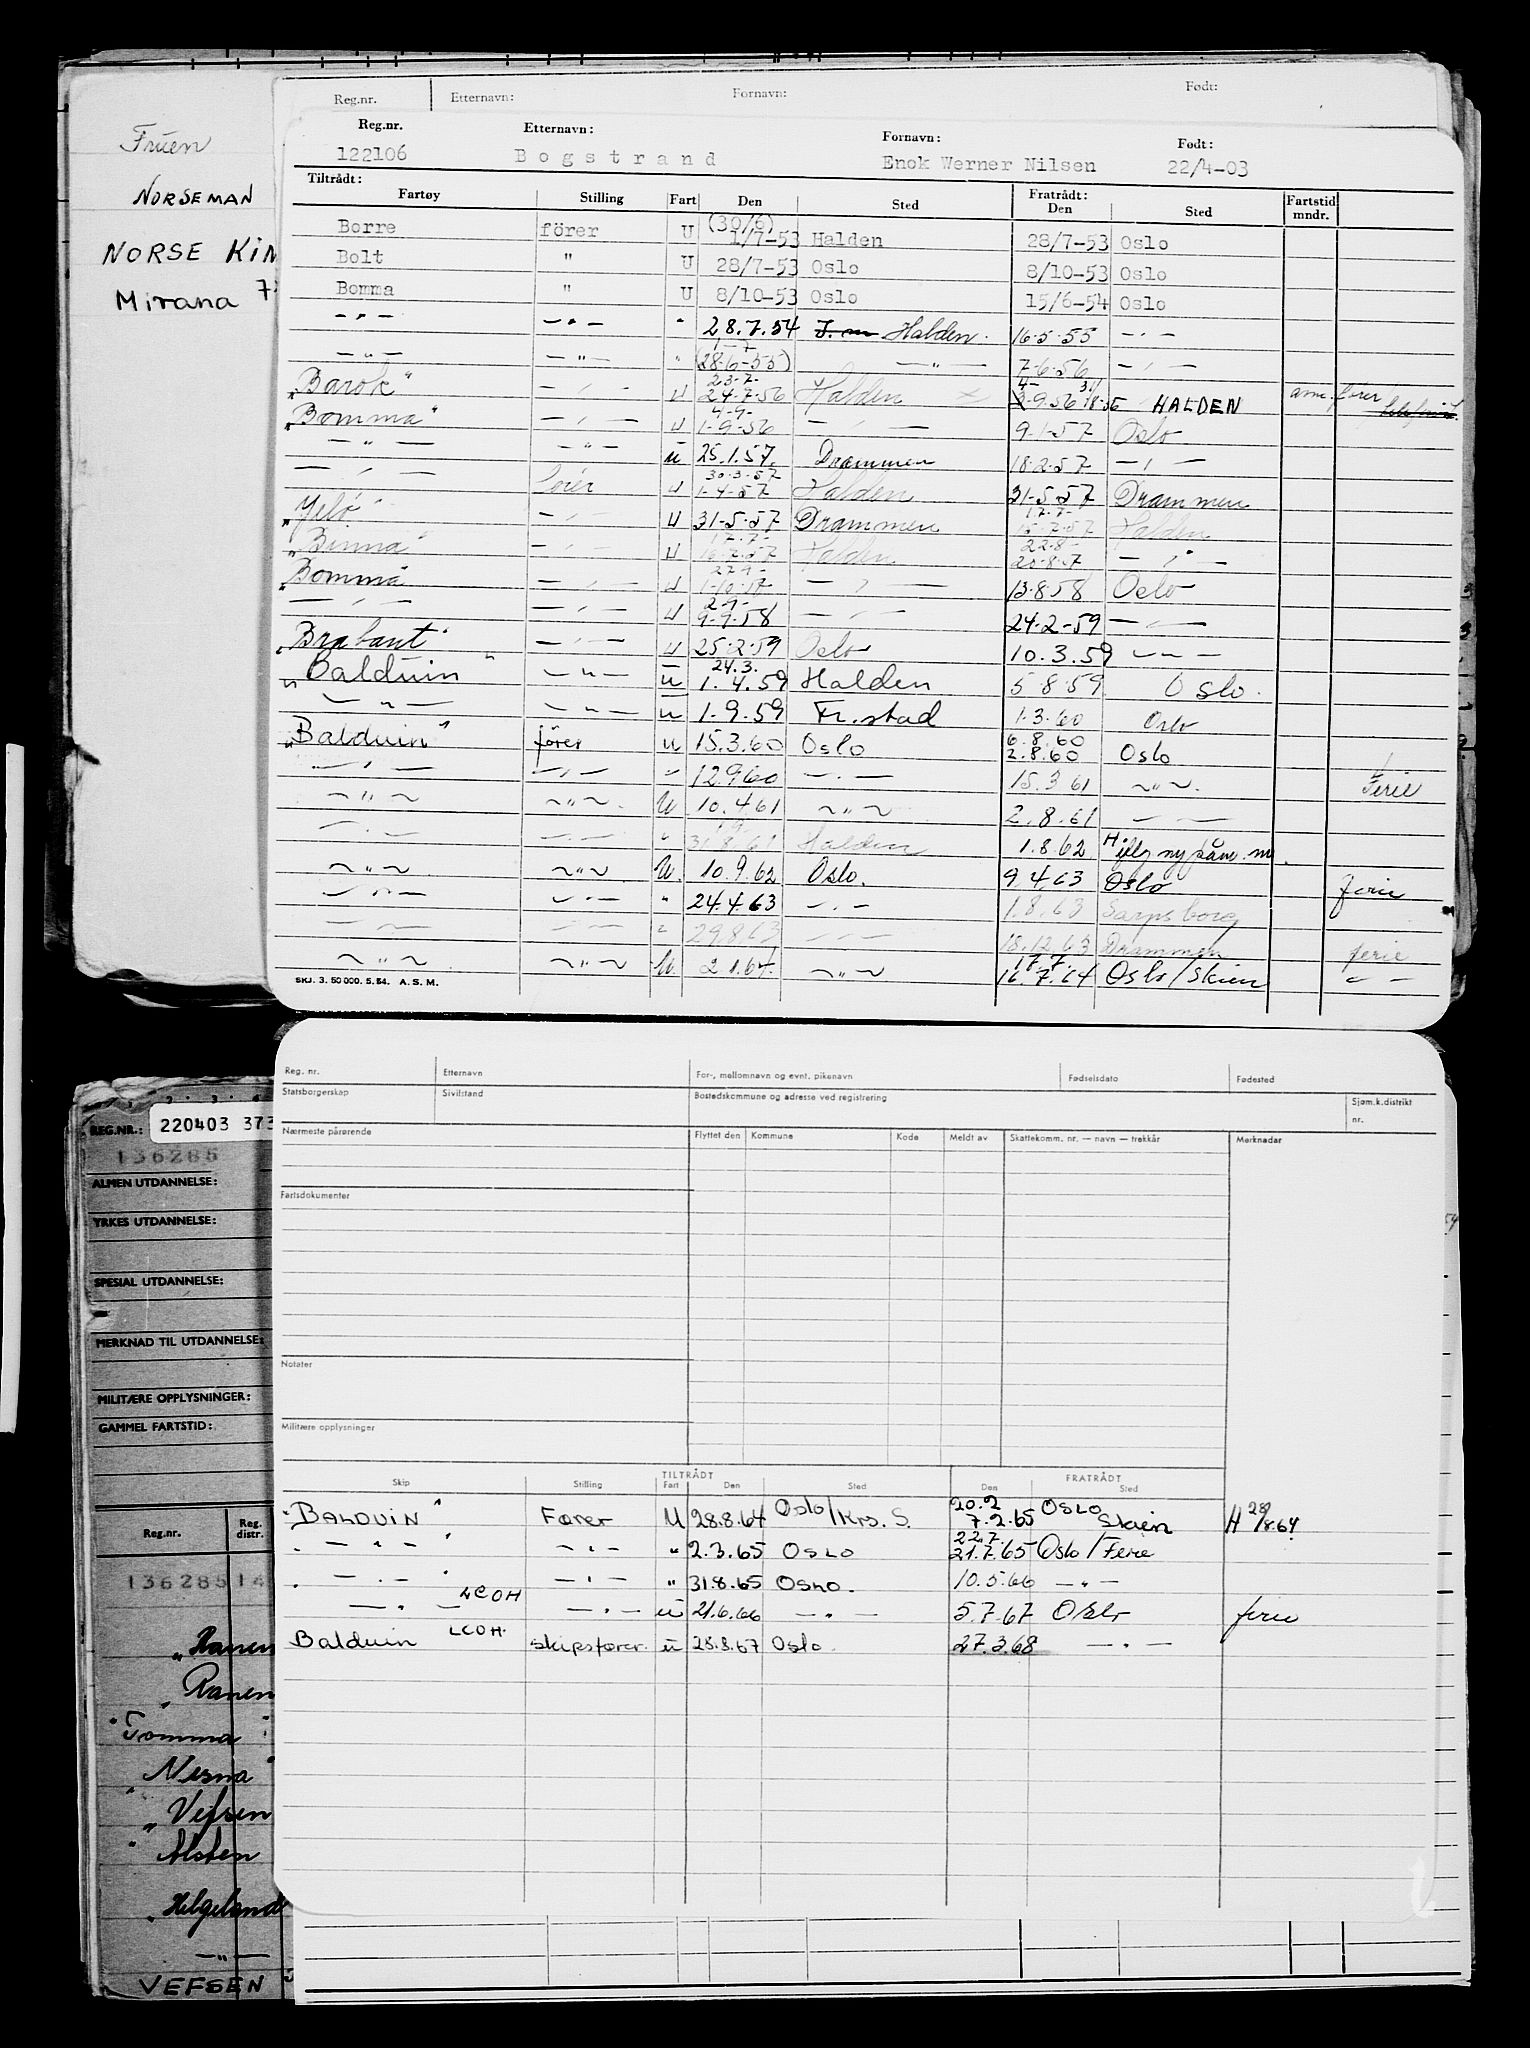 Fruen
NORSEMAN
NORSE KIN
Mirana
Reg.nr. Etternavn: Fornavn: Født:
Reg.nr. Etternavn: Fornavn: Født:
122106 Bogstrand Enok Werner Nilsen 22/4-03
Tiltrådt: Fratrådt:
Fartøy Stilling Fart Den Sted Den Sted Fartstid mndr.
(30/6)
Borre förer U 1/7-53 Halden 28/7-53 Oslo
Bolt " U 28/7-53 Oslo 8/10-53 Oslo
Bomma " U 8/10-53 Oslo 15/6-54 Oslo
— " — — " — " 28.7.54 Halden. 16.5.55 — " —
1-7
— " — — " — " (28.6-55) — " — 7.6.56 — " —
23.7- 4-
"Barok" — " — U 24.7.56 Halden 3.9.56 HALDEN fører
4-9-
"Bomma" — " — U 1-9-56 — " — 9.1.57 Oslo
— " — — " — U 25.1.57. Drammen 18.2.57 — " —
30.3.57
— " — fører U 1-4-57 Halden 31-5-57 Drammen
17.7-
"Jelø" — " — U 31-5-57 Drammen 15.7.57 Halden
17.7- 22.8-
"Binna" — " — U 16.7.57 Halden 20.8.57 — " —
27.9-
"Bomma" — " — U 1-10-57 — " — 13.8.58 Oslo
2-9-
— " — — " — U 9-9-58 — " — 24-2-59 — " —
"Brabant" — " — U 25.2.59 Oslo 10.3.59 — " —
24.3.
"Balduin" — " — U 1.4.59 Halden 5.8.59 Oslo.
— " — — " — U 1.9.59 Fr.stad 1.3.60 Oslo
6.8.60
"Balduin" fører U 15.3.60 Oslo 2.8.60 Oslo
— " — — " — " 12.9.60 — " — 15.3.61 — " —. Ferie
— " — — " — U 10.4.61 — " — 2.8.61 — " —
— " — — " — " 31.8.61 Halden 1.8.62 H. iflg ny påm. m.
— " — — " — U. 10.9.62 Oslo. 9.4.63 Oslo ferie
— " — — " — " 24.4.63 — " — 1.8.63 Sarpsborg
— " — — " — " 29.8.63 — " — 18.12.63 Drammen ferie
17.7.
— " — — " — U. 2.1.64. — " — 16.7.64 Oslo/Skien — " —
SKJ. 3. 50 000. 5. 54. A. S. M.
Reg. nr. Etternavn For-, mellomnavn og evnt. pikenavn Fødselsdato Fødested
Statsborgerskap Sivilstand Bostedskommune og adresse ved registrering Sjøm.k.distrikt nr.
Nærmeste pårørende Flyttet den Kommune Kode Meldt av Skattekomm. nr. — navn — trekkår Merknader
Fartsdokumenter
Notater
Militære opplysninger
TILTRÅDT FRATRÅDT
Skip Stilling Fart Den Sted Den Sted
20.2
"BALDUIN" Fører U 28.8.64 Oslo/Krs.S. 7.2.65 OSLO Skien H 28/8.64
22.7.
— " — — " — " 2.3.65 OSLO 21.7.65 Oslo/Ferie
— " — — " — " 31.8.65 OSLO. 10.5.66 — " —
— " — LCOH — " — U 21.6.66 — " — 5.7.67 Oslo ferie
Balduin LCOH. skipsfører. U 28.8.67 Oslo. 27.3.68 — " —
REG.NR.: 220403 373
136285
ALMEN UTDANNELSE:
YRKES UTDANNELSE:
SPESIAL UTDANNELSE:
MERKNAD TIL UTDANNELSE:
MILITÆRE OPPLYSNINGER:
GAMMEL FARTSTID:
Reg.nr. Reg. distr.
136285 14
"Ranen
"Ranen
"Tomma"
"Nesna"
"Vefsen
"Alsten
"Helgeland
— " —
VEFSEN